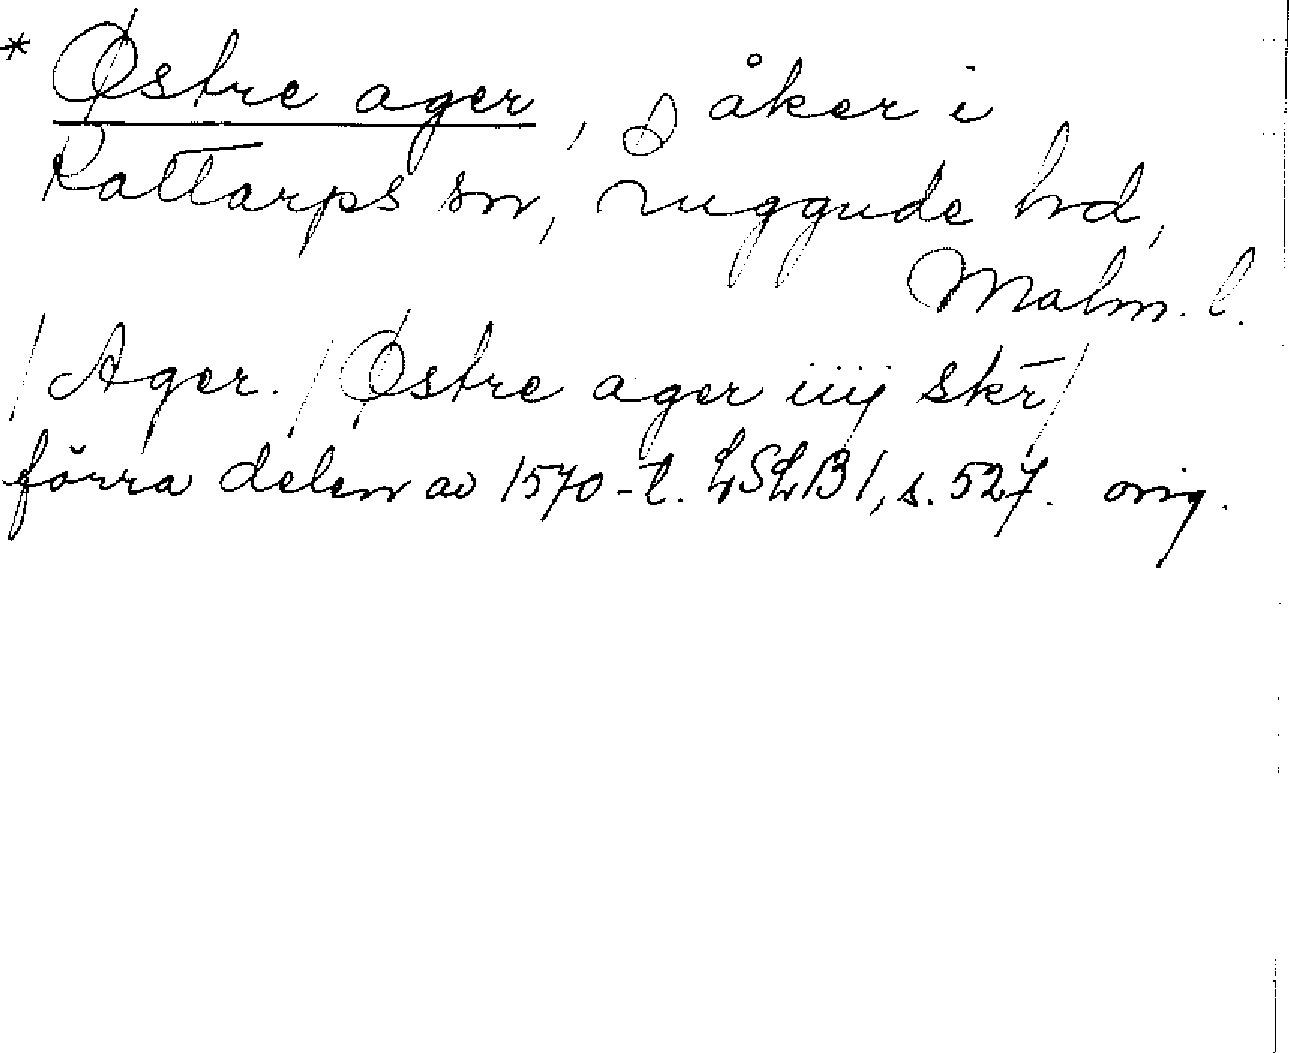 * Østre ager, åker i
Kattarps sn, Luggude hd,
Malm. l.
/ Ager. / Østre ager iiij skr̄ /
förra delen av 1570-t. LSLB I, s. 527. orig.